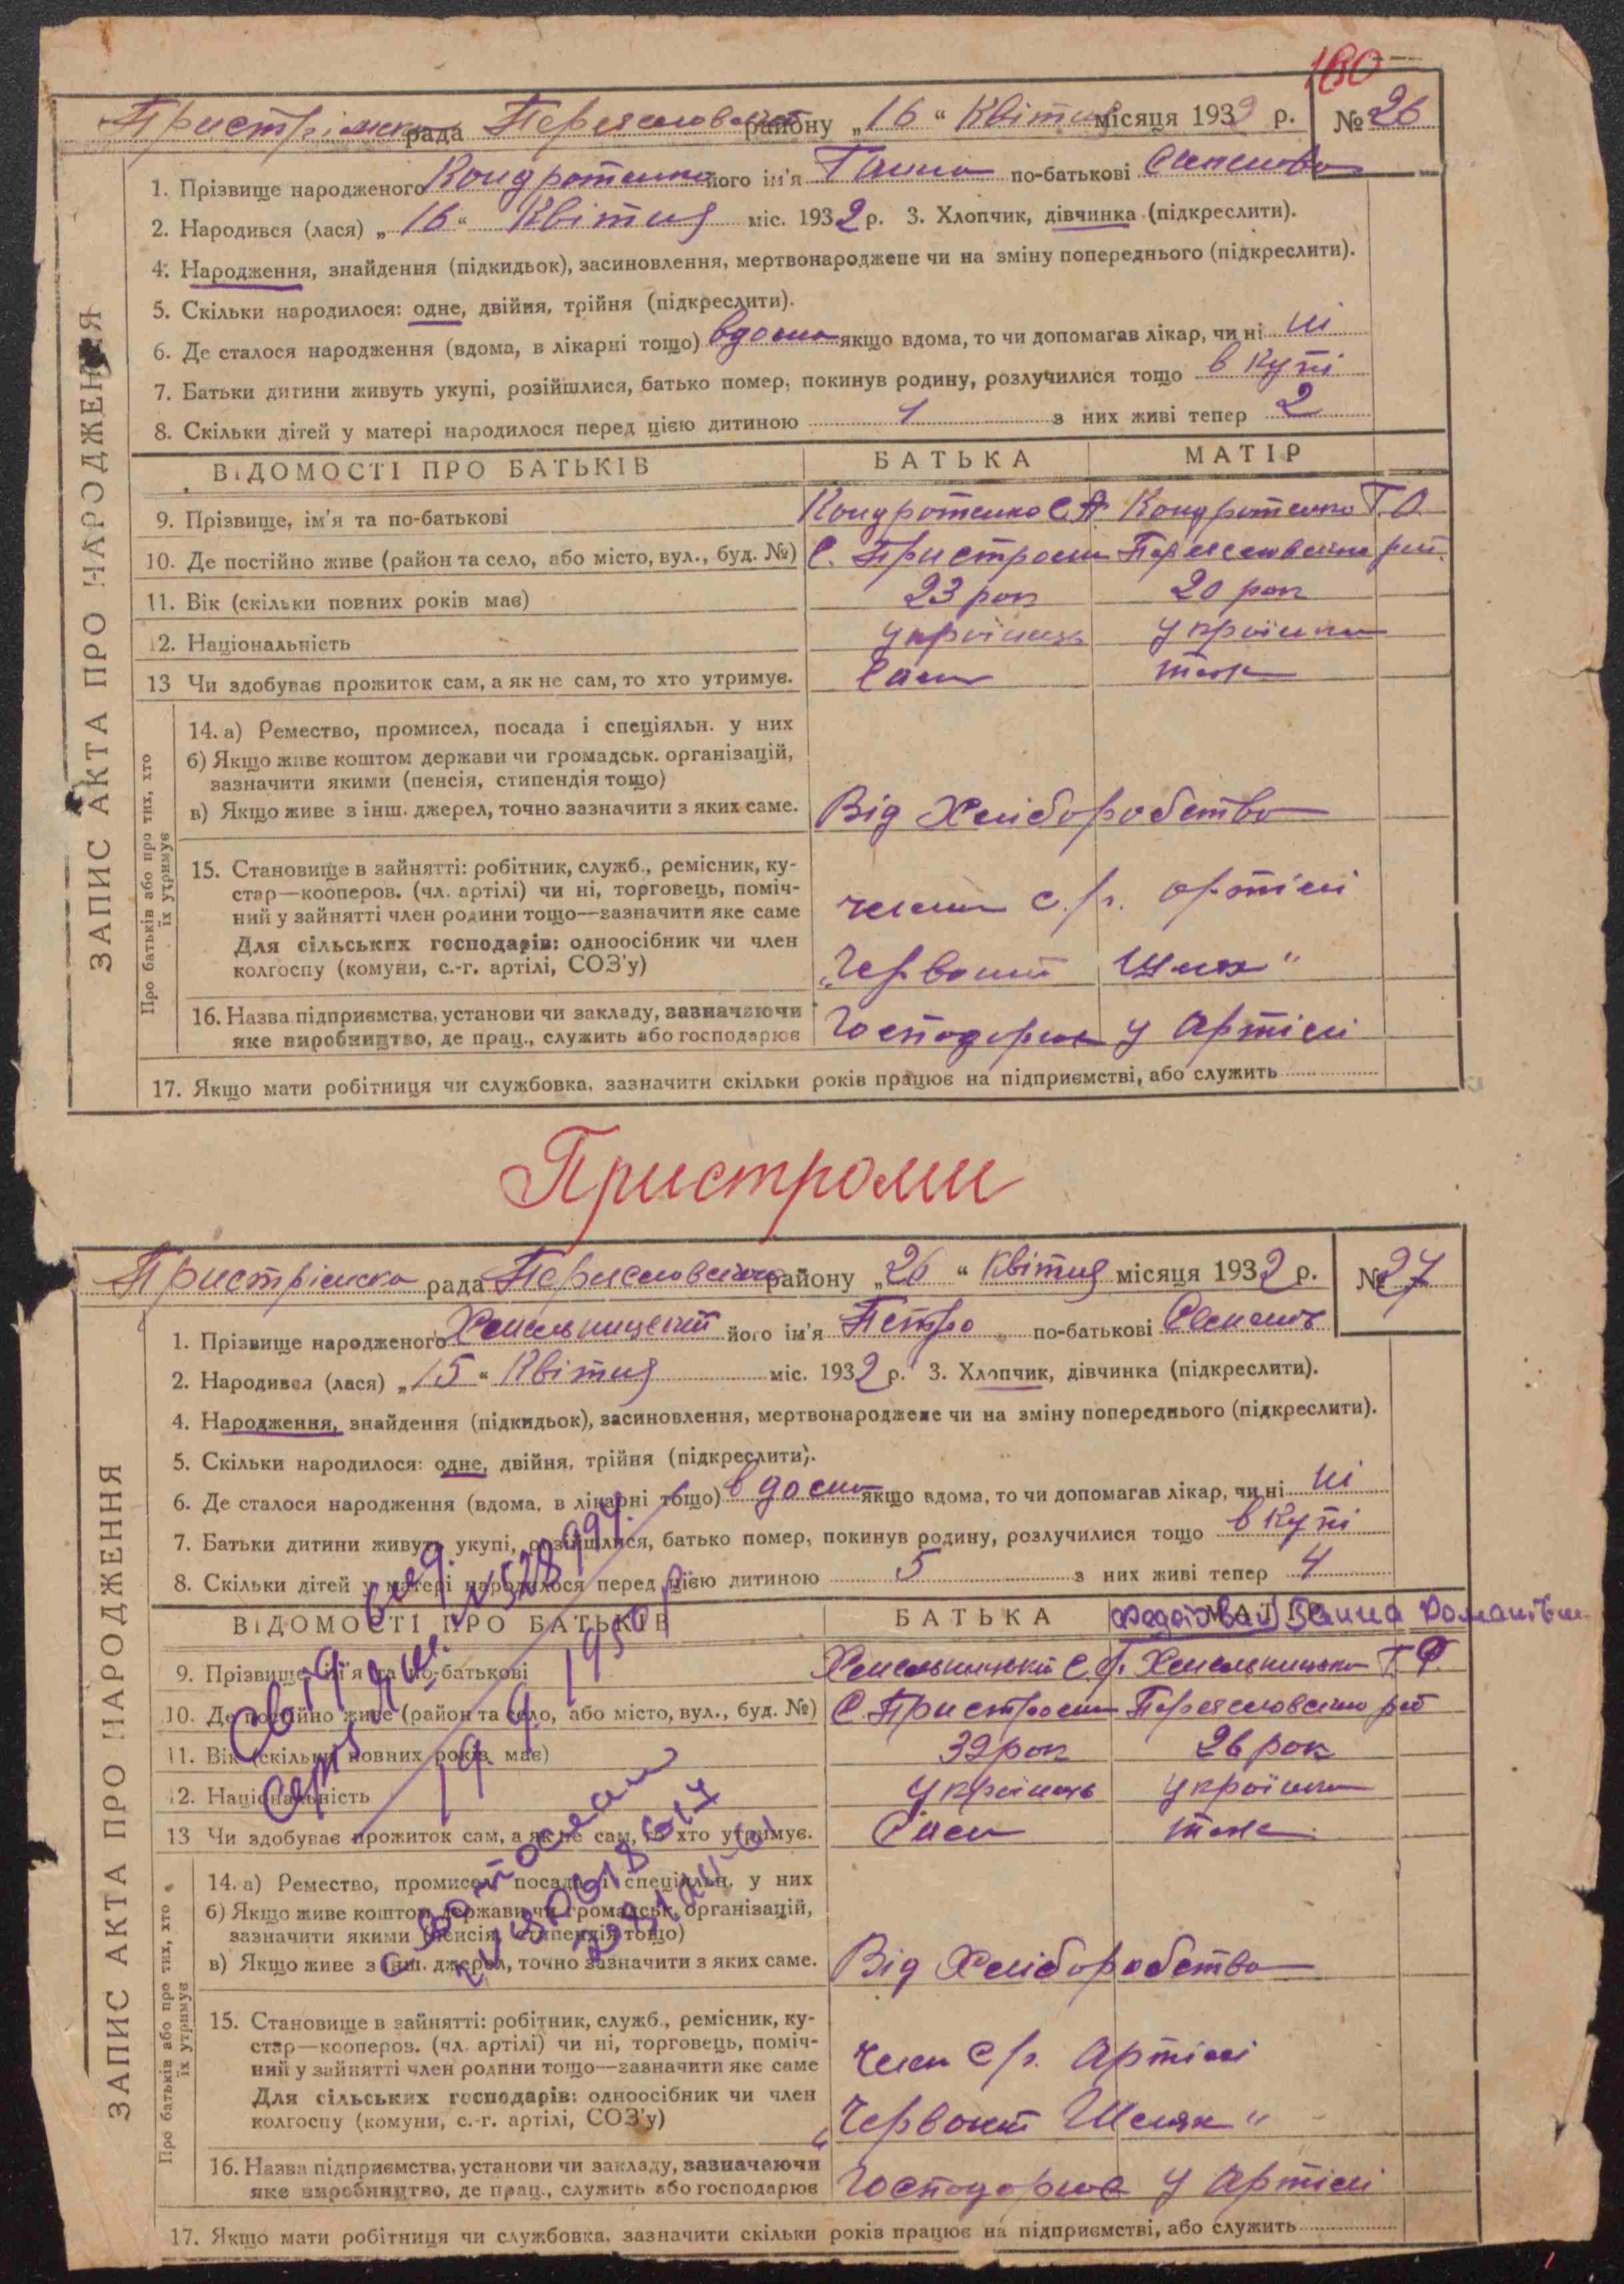 160
Пристрімска рада Переяславського району „16“ Квітня місяця 1932 р. № 26
1. Прізвище народженого Кондратенко його ім'я Ганна по-батькові Семенова
2. Народився (лася) „16“ Квітня міс. 1932 р. 3. Хлопчик, дівчинка (підкреслити).
4. Народження, знайдення (підкидьок), засиновлення, мертвонароджене чи на зміну попереднього (підкреслити).
5. Скільки народилося: одне, двійня, трійня (підкреслити).
6. Де сталося народження (вдома, в лікарні тощо) вдома якщо вдома, то чи допомагав лікар, чи ні ні
7. Батьки дитини живуть укупі, розійшлися, батько помер, покинув родину, розлучилися тощо в купі
8. Скільки дітей у матері народилося перед цією дитиною 1 з них живі тепер 2
ВІДОМОСТІ ПРО БАТЬКІВ БАТЬКА МАТІР
9. Прізвище, ім'я та по-батькові Кондратенко С.А. Кондратенко Г.О.
10. Де постійно живе (район та село, або місто, вул., буд. №) С. Пристроми Переяславского рай.
11. Вік (скільки повних років має) 23 рок 20 рок
12. Національність українець українка
13 Чи здобуває прожиток сам, а як не сам, то хто утримує. Сам тоже
14. а) Ремество, промисел, посада і спеціяльн. у них
б) Якщо живе коштом держави чи громадськ. організацій,
зазначити якими (пенсія, стипендія тощо)
в) Якщо живе з інш. джерел, точно зазначити з яких саме. Від Хліборобства
15. Становище в зайнятті: робітник, служб., ремісник, ку-
стар—кооперов. (чл. артілі) чи ні, торговець, поміч-
ний у зайнятті член родини тощо—зазначити яке саме член с.г. артілі
Для сільських господарів: одноосібник чи член
колгоспу (комуни, с.-г. артілі, СОЗ'у) „Червоний Шлях“
16. Назва підприємства, установи чи закладу, зазначаючи
яке виробництво, де прац., служить або господарює Господарює у Артілі
17. Якщо мати робітниця чи службовка, зазначити скільки років працює на підприємстві, або служить
ЗАПИС АКТА ПРО НАРОДЖЕННЯ
Про батьків або про тих, хто
їх утримує
Пристроми
Пристрімска рада Переяславського району „26“ Квітня місяця 1932 р. № 27
1. Прізвище народженого Хмельницький його ім'я Петро по-батькові Семенов
2. Народився (лася) „15“ Квітня міс. 1932 р. 3. Хлопчик, дівчинка (підкреслити).
4. Народження, знайдення (підкидьок), засиновлення, мертвонароджене чи на зміну попереднього (підкреслити).
5. Скільки народилося: одне, двійня, трійня (підкреслити).
6. Де сталося народження (вдома, в лікарні тощо) вдома якщо вдома, то чи допомагав лікар, чи ні ні
7. Батьки дитини живуть укупі, розійшлися, батько помер, покинув родину, розлучилися тощо в купі
8. Скільки дітей у матері народилося перед цією дитиною 5 з них живі тепер 4
ВІДОМОСТІ ПРО БАТЬКІВ БАТЬКА МАТІР Ганна Романівна
9. Прізвище, ім'я та по-батькові Хмельницький С. Хмельницька Г.
10. Де постійно живе (район та село, або місто, вул., буд. №) С. Пристроми Переяславского рай
11. Вік (скільки повних років має) 32 рок 26 рок
12. Національність українець українка
13 Чи здобуває прожиток сам, а як не сам, то хто утримує. Сам тоже
14. а) Ремество, промисел, посада і спеціяльн. у них
б) Якщо живе коштом держави чи громадськ. організацій,
зазначити якими (пенсія, стипендія тощо)
в) Якщо живе з інш. джерел, точно зазначити з яких саме. Від Хліборобства
15. Становище в зайнятті: робітник, служб., ремісник, ку-
стар—кооперов. (чл. артілі) чи ні, торговець, поміч-
ний у зайнятті член родини тощо—зазначити яке саме член с.г. Артілі
Для сільських господарів: одноосібник чи член
колгоспу (комуни, с.-г. артілі, СОЗ'у) „Червоний Шлях“
16. Назва підприємства, установи чи закладу, зазначаючи
яке виробництво, де прац., служить або господарює Господарює у Артілі
17. Якщо мати робітниця чи службовка, зазначити скільки років працює на підприємстві, або служить
ЗАПИС АКТА ПРО НАРОДЖЕННЯ
Про батьків або про тих, хто
їх утримує